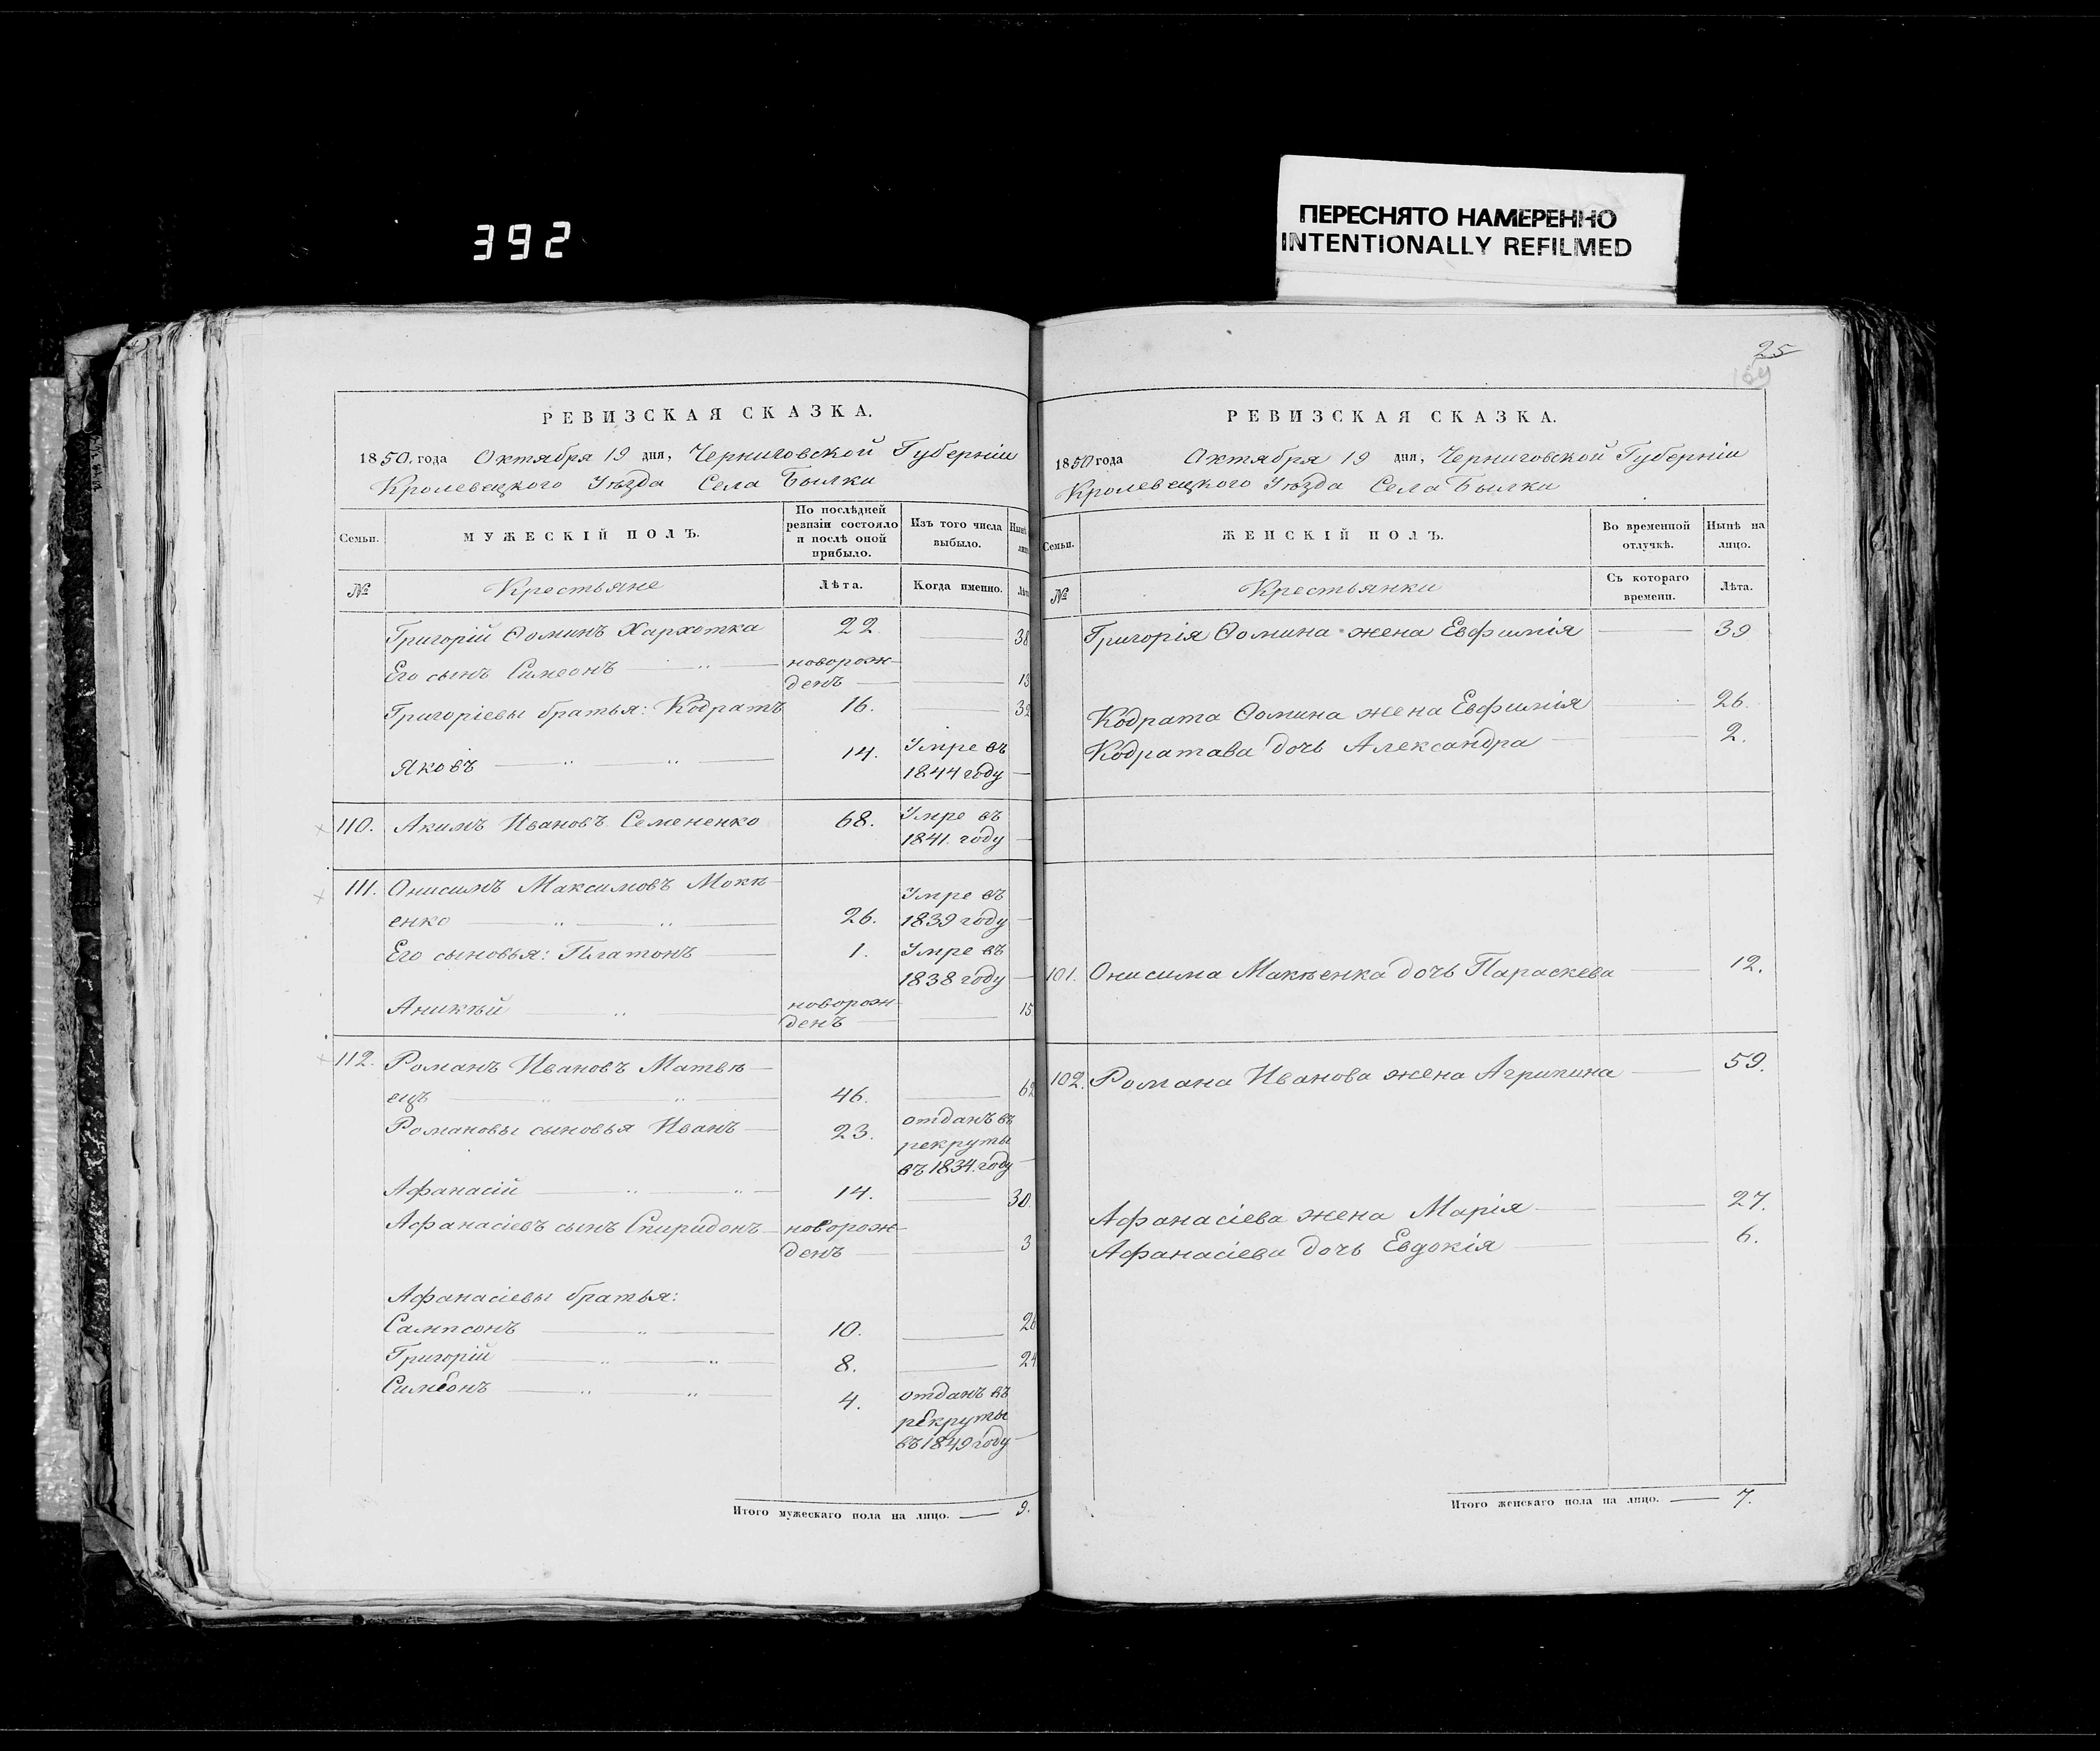 392
ПЕРЕСНЯТО НАМЕРЕННО
INTENTIONALLY REFILMED
РЕВИЗСКАЯ СКАЗКА.
1850. года Октября 19 дня, Черниговской Губерніи
Кролевецкого Уѣзда Села Былки
Семьи.
МУЖЕСКІЙ ПОЛЪ.
По послѣдней
ревизіи состояло
и послѣ оной
прибыло.
Изъ того числа
выбыло.
№
Крестьяне
Лѣта.
Когда именно.
Григорій Ѳоминъ Хархотка 22 38
Его сынъ Симеонъ новорож-
денъ 13
Григоріевы братья: Кодратъ 16. 32
Яковъ 14. Умре въ
1844 году
110. Акимъ Ивановъ Семененко 68. Умре въ
1841. году
111. Онисимъ Максимовъ Мокѣ-
енко 26. Умре въ
1839 году
Его сыновья: Платонъ 1. Умре въ
1838 году
Аникѣй новорож-
денъ 15
112. Романъ Ивановъ Матвѣ-
ецъ 46. 62
Романовы сыновья Иванъ 23. отданъ въ
рекруты
въ 1834. году
Афанасій 14. 30
Афанасіевъ сынъ Спиридонъ новорож-
денъ 3
Афанасіевы братья:
Сампсонъ 10. 26
Григорій 8. 24
Симеонъ 4. отданъ въ
рекруты
въ 1849 году
Итого мужескаго пола на лицо. 9.
25
РЕВИЗСКАЯ СКАЗКА.
1850 года Октября 19 дня, Черниговской Губерніи
Кролевецкого Уѣзда Села Былки
Семьи.
ЖЕНСКІЙ ПОЛЪ.
Во временной
отлучкѣ.
Нынѣ на
лицо.
№
Крестьянки
Съ котораго
времени.
Лѣта.
Григорія Ѳомина жена Евфимія 39
Кодрата Ѳомина жена Евфимія 26.
Кодратава дочь Александра 2.
101. Онисима Макѣенка дочь Параскева 12.
102. Романа Иванова жена Агрипина 59.
Афанасіева жена Марія 27.
Афанасіева дочь Евдокія 6.
Итого женскаго пола на лицо. 7.